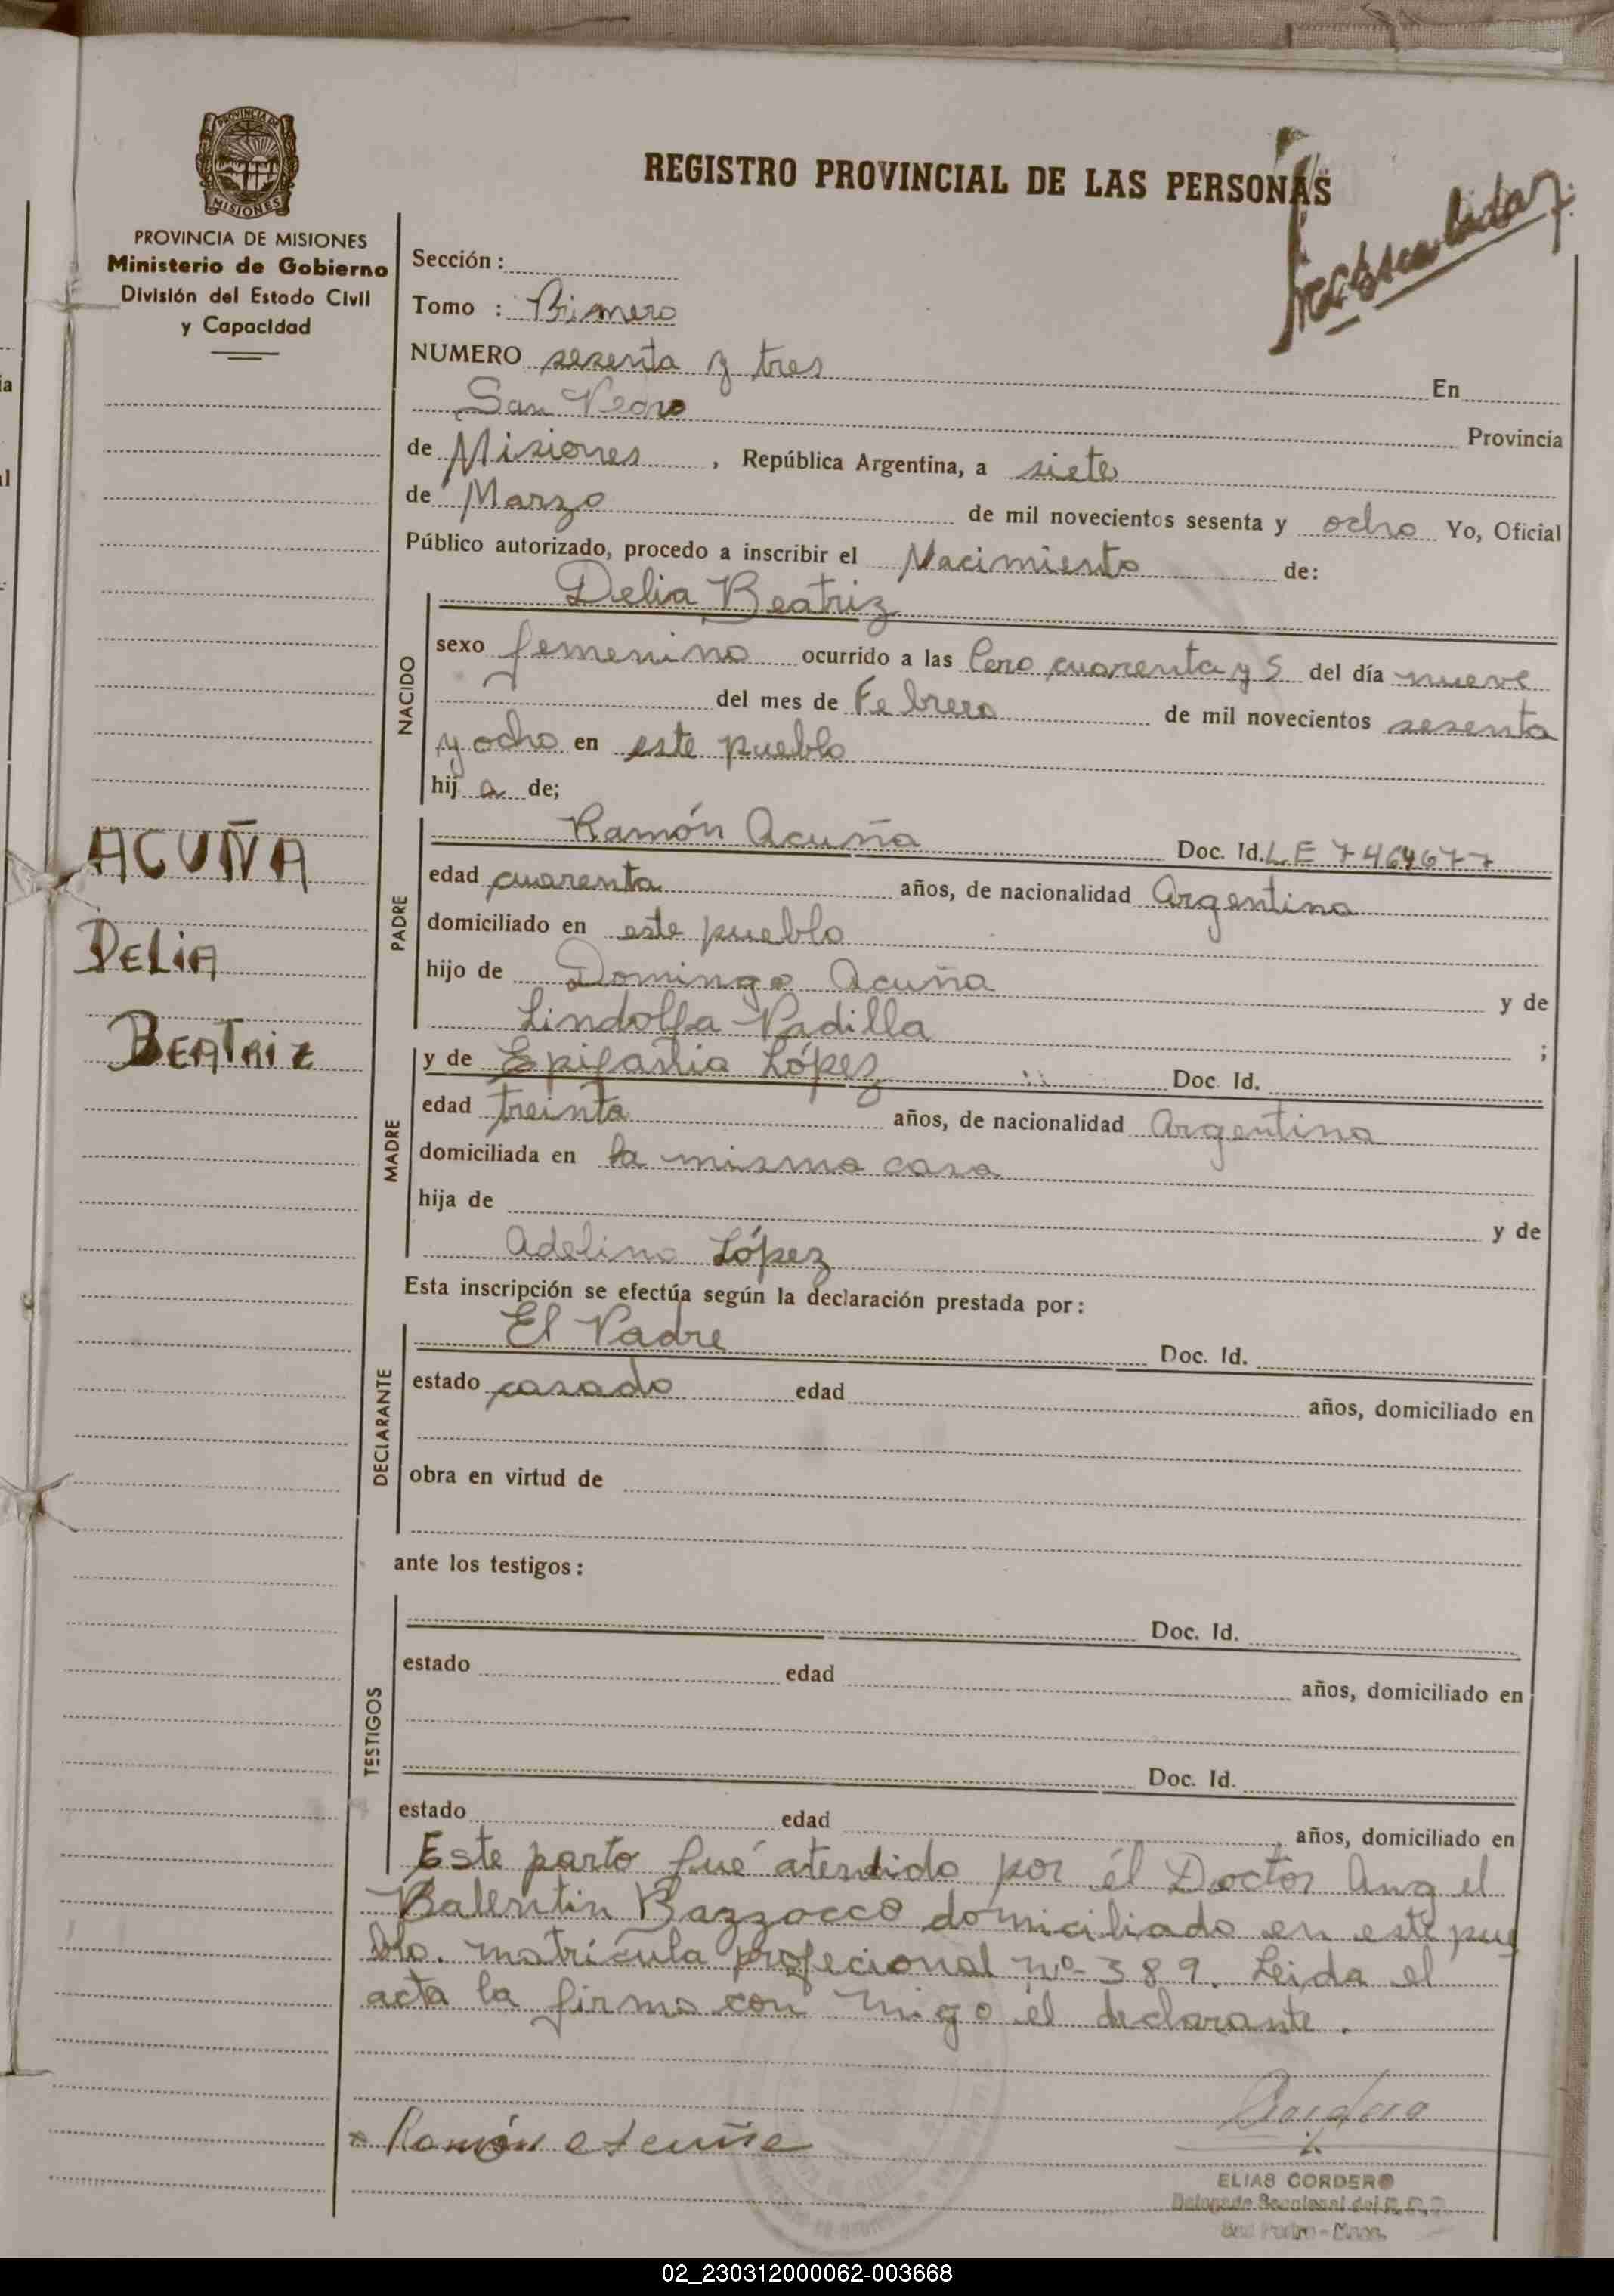 PROVINCIA DE
MISIONES
PROVINCIA DE MISIONES
Ministerio de Gobierno
División del Estado Civil
y Capacidad
REGISTRO PROVINCIAL DE LAS PERSONAS
Sección :
Tomo : Primero
NUMERO sesenta y tres En
San Pedro Provincia
de Misiones , República Argentina, a siete
de Marzo de mil novecientos sesenta y ocho Yo, Oficial
Público autorizado, procedo a inscribir el Nacimiento de:
NACIDO
Delia Beatriz
sexo femenino ocurrido a las Cero cuarenta y 5 del día nueve
del mes de Febrero de mil novecientos sesenta
y ocho en este pueblo
hij a de;
ACUÑA
DELIA
BEATRIZ
PADRE
Ramón Acuña Doc. Id. LE 7464677
edad cuarenta años, de nacionalidad Argentina
domiciliado en este pueblo
hijo de Domingo Acuña y de
Lindolfa Padilla ;
MADRE
y de Epifania López Doc. Id.
edad treinta años, de nacionalidad Argentina
domiciliada en la misma casa
hija de y de
Adelina López
Esta inscripción se efectúa según la declaración prestada por:
DECLARANTE
El Padre Doc. Id.
estado casado edad años, domiciliado en
obra en virtud de
ante los testigos:
TESTIGOS
Doc. Id.
estado edad años, domiciliado en
Doc. Id.
estado edad años, domiciliado en
Este parto fué atendido por él Doctor Angel
Balentin Bazzocco domiciliado en este pue
blo. matrícula profecional nº 389. Leida el
acta la firma con migo él declarante.
Ramón Acuña
ELIAS CORDERO
02_230312000062-003668